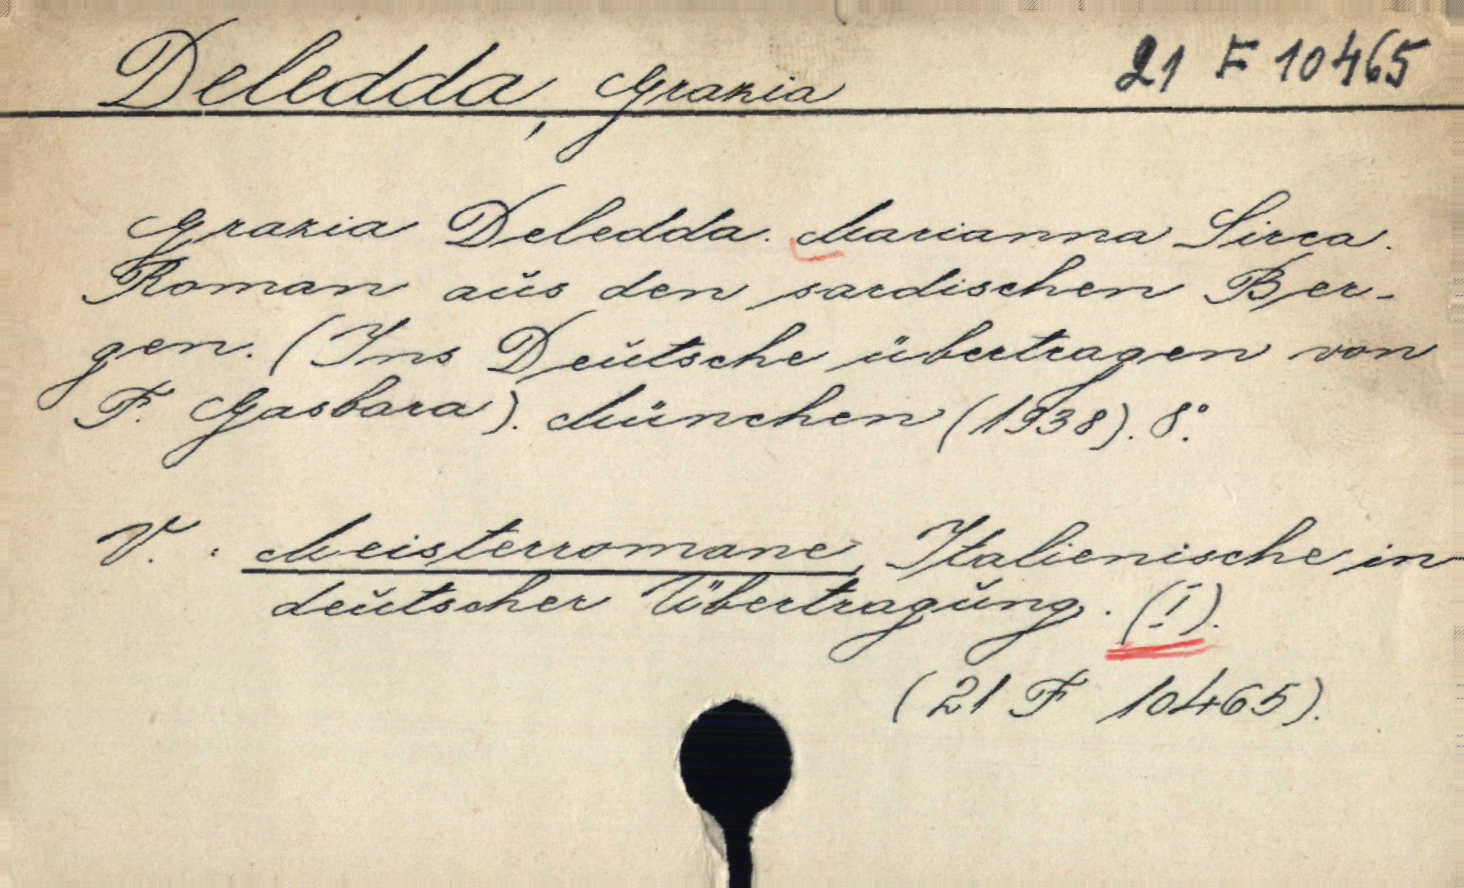 Deledda, Grazia 21 F 10465
Grazia Deledda. Marianna Sirca.
Roman aus den sardischen Ber-
gen. (Ins Deutsche übertragen von
F. Gasbara). München (1938). 8°.
V. : Meisterromane, Italienische in
deutscher Übertragung. (I).
(21 F 10465).